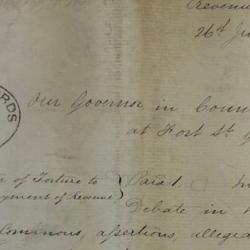 Revenue
26th Ju
RDS
Our Governor in Coun
at Fort St. G
of Torture to
yment of Revenue
Para 1. In
Debate in
lominous, assertions, allega